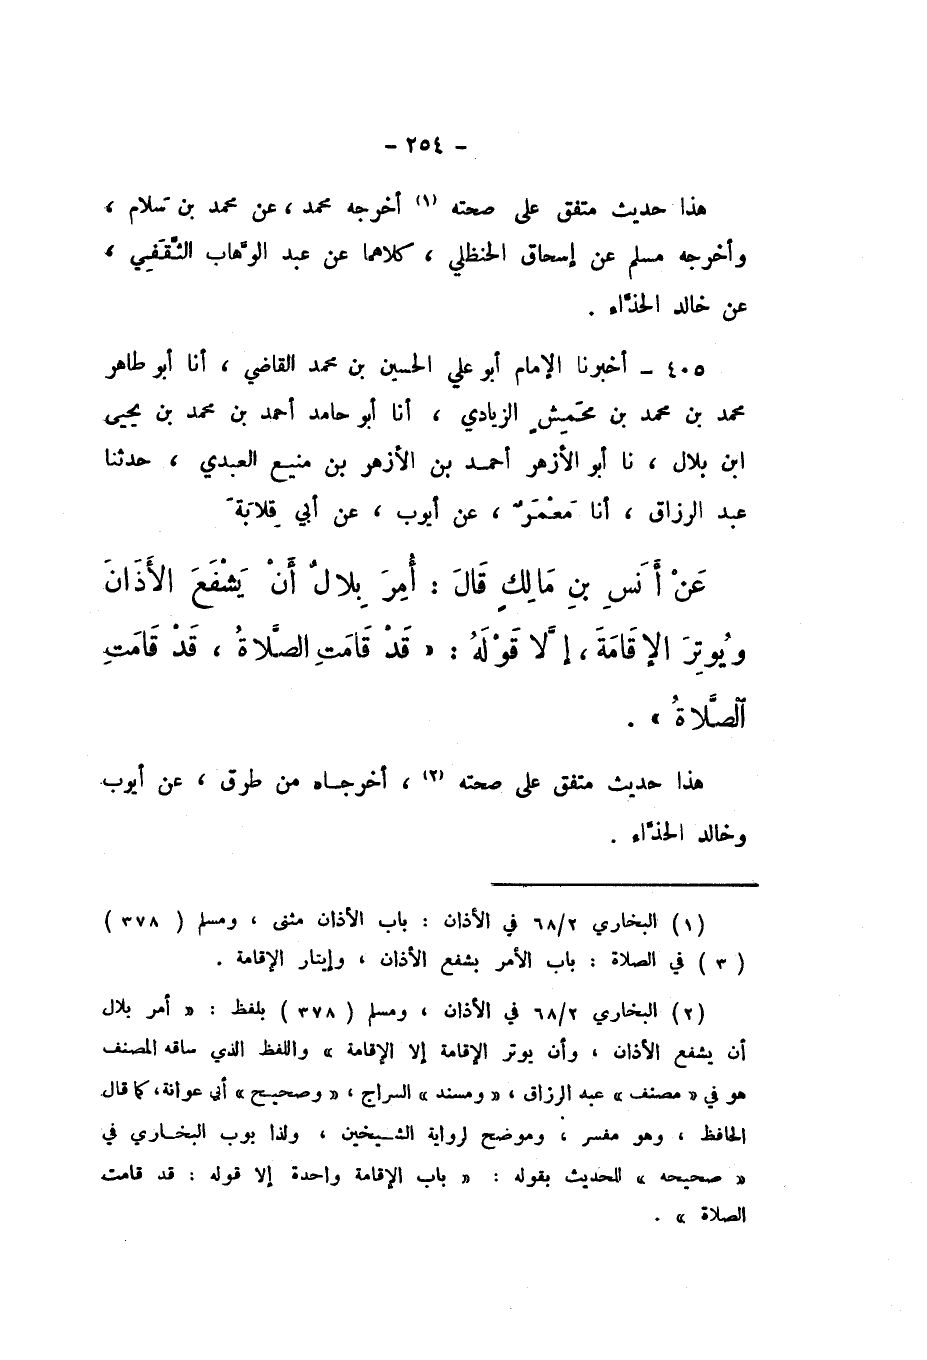 - ٢٥٤ -
هذا حديث متفق على صحته (١) أخرجه محمد ، عن محمد بن سَلام ،
وأخرجه مسلم عن إسحاق الحنظلي ، كلاهما عن عبد الوهَّاب الثَّقَفِي ،
عن خالد الحذَّاء .
٤٠٥ - أخبرنا الإمام أبو علي الحسين بن محمد القاضي ، أنا أبو طاهر
محمد بن محمد بن محَمِشٍ الزيادي ، أنا أبو حامد أحمد بن محمد بن يحيى
ابن بلال ، نا أبو الأزهر أحمد بن الأزهر بن منيع العبدي ، حدثنا
عبد الرزاق ، أنا مَعْمَرٌ ، عن أيوب ، عن أبي قِلابَةَ
عَنْ أَنَسِ بنِ مَالِكٍ قَالَ : أُمِرَ بِلالٌ أَنْ يَشْفَعَ الأَذَانَ
ويُوتِرَ الإقَامَةَ ، إلَّا قَوْلَهُ : « قَدْ قَامَتِ الصَّلاةُ ، قَدْ قَامَتِ
الصَّلاةُ » .
هذا حديث متفق على صحته (٢) ، أخرجاه من طرق ، عن أيوب
وخالد الحذَّاء .
(١) البخاري ٦٨/٢ في الأذان : باب الأذان مثنى ، ومسلم ( ٣٧٨ )
( ٣ ) في الصلاة : باب الأمر بشفع الأذان ، وإيتار الإقامة .
(٢) البخاري ٦٨/٢ في الأذان ، ومسلم ( ٣٧٨ ) بلفظ : « أمر بلال
أن يشفع الأذان ، وأن يوتر الإقامة إلا الإقامة » واللفظ الذي ساقه المصنف
هو في « مصنف » عبد الرزاق ، « ومسند » السراج ، « وصحيح » أبي عوانة، كما قال
الحافظ ، وهو مفسر ، وموضح لرواية الشيخين ، ولذا بوب البخاري في
« صحيحه » للحديث بقوله : « باب الإقامة واحدة إلا قوله : قد قامت
الصلاة » .